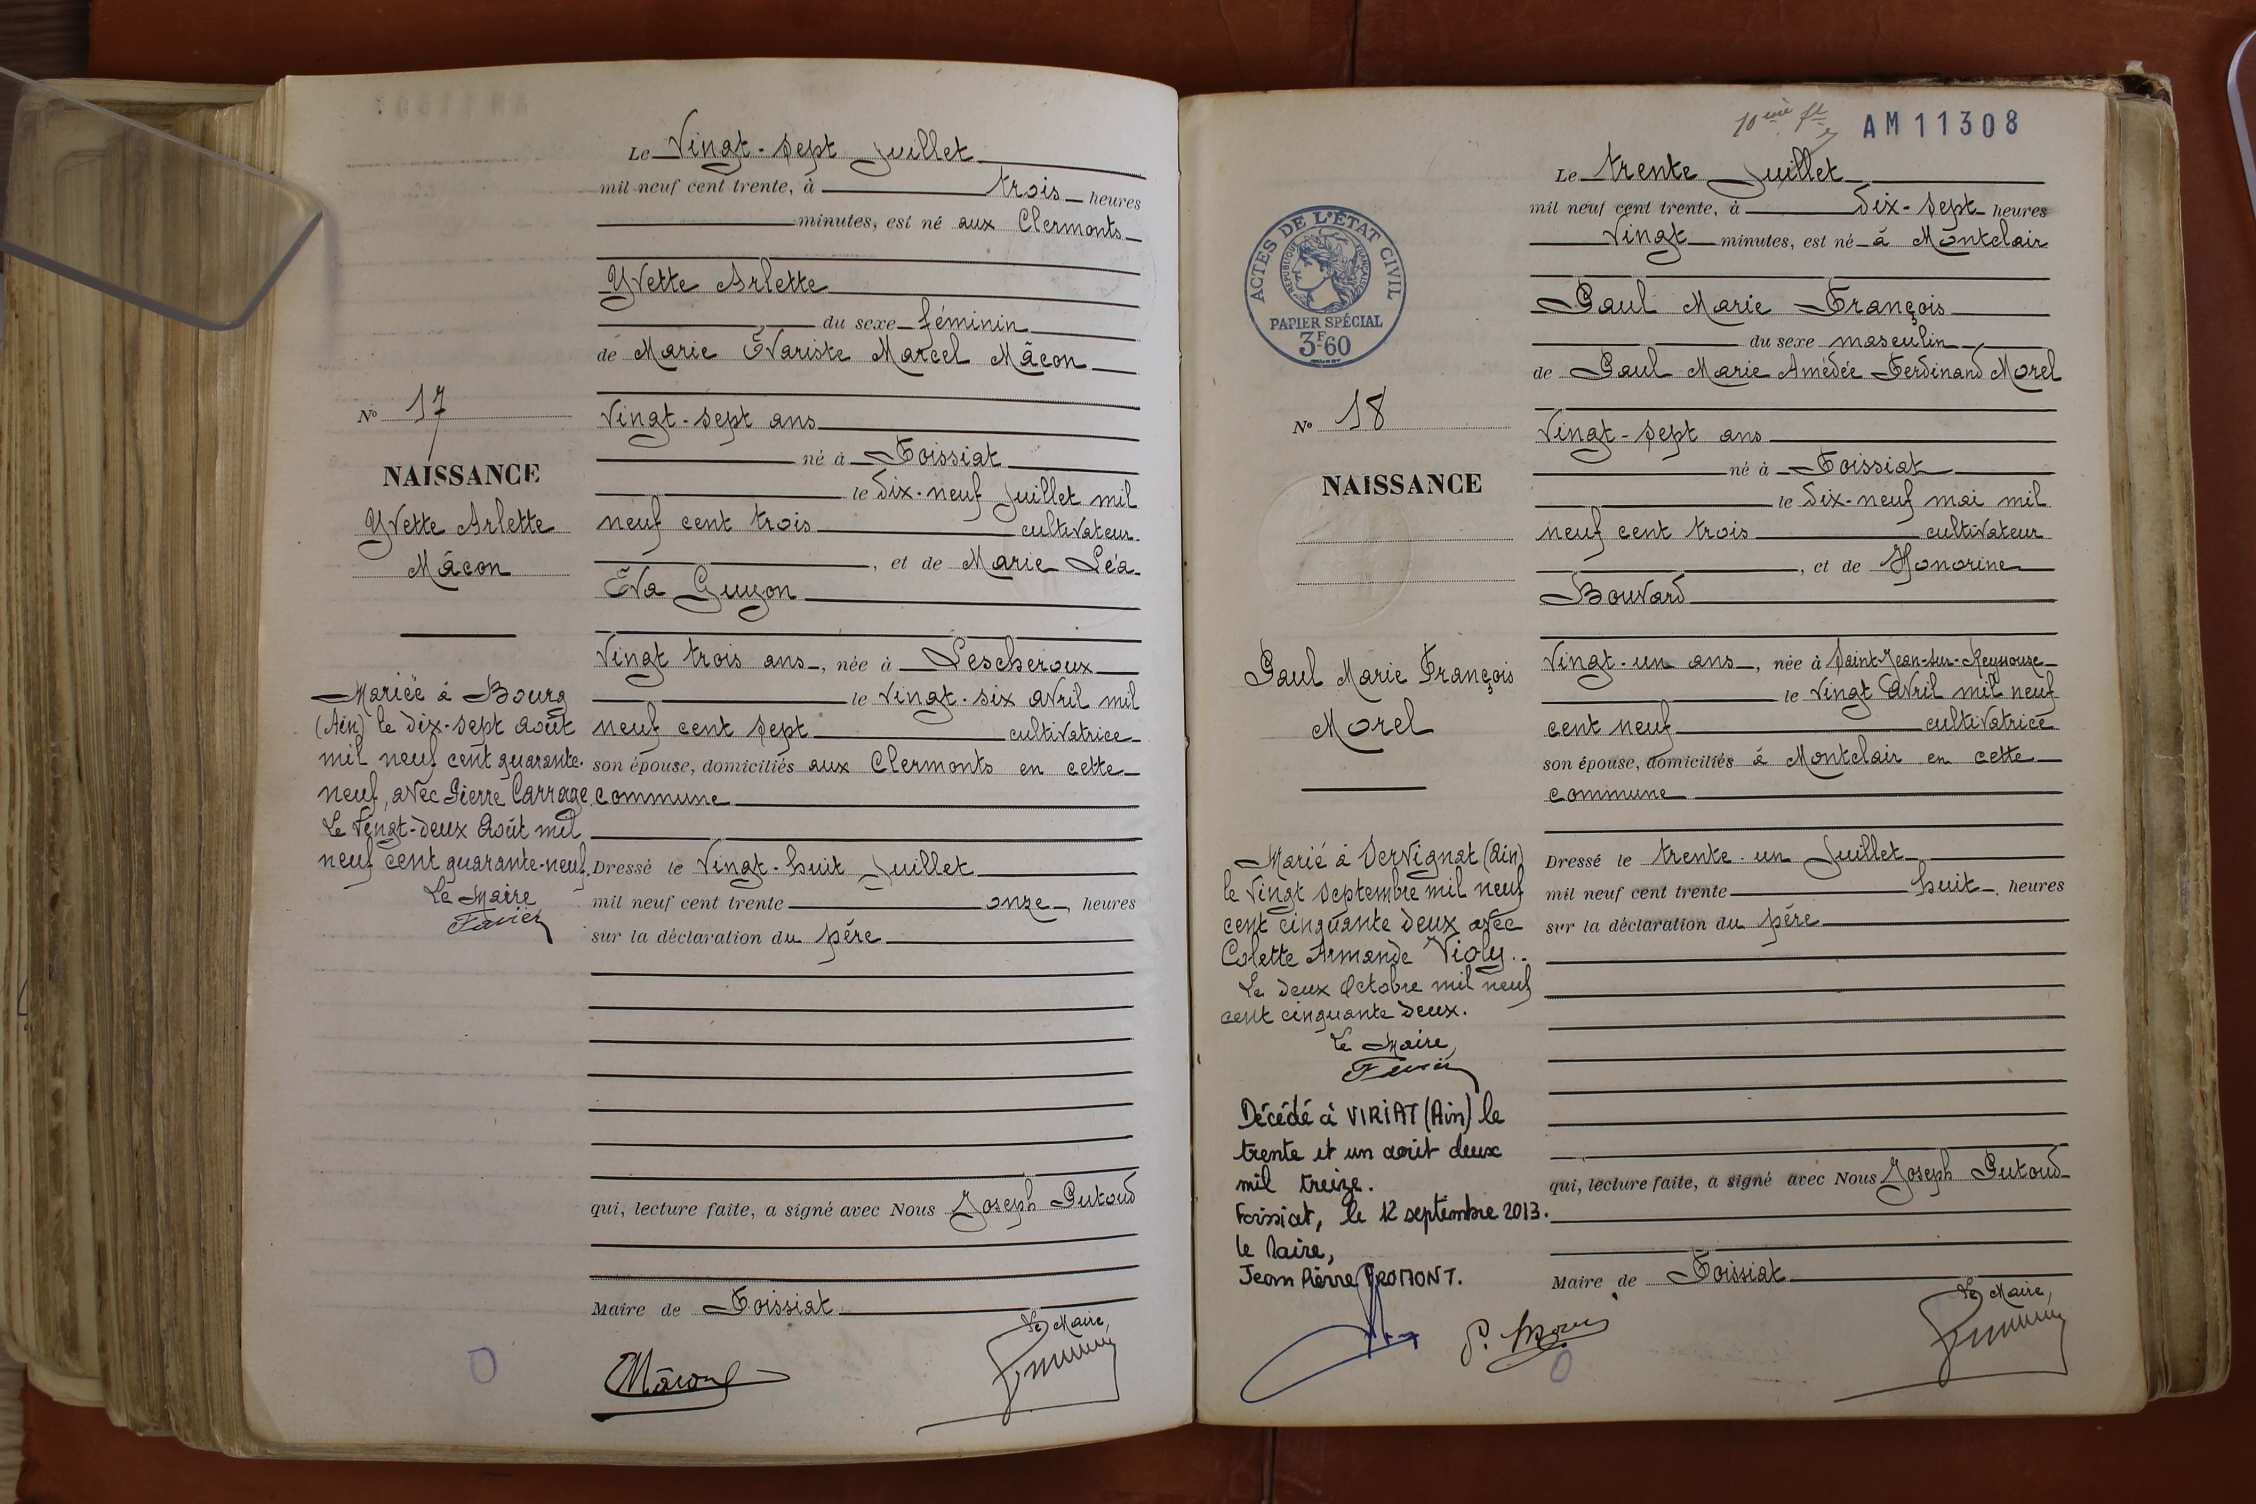 Le Vingt-sept Juillet
mil neuf cent trente, à trois heures
minutes, est né aux Clermonts
Yvette Arlette
du sexe féminin
de Marie Évariste Marcel Mâcon
Vingt-sept ans
né à Foissiat
le dix-neuf Juillet mil
neuf cent trois cultivateur
, et de Marie Léa
Éva Guyon
Vingt trois ans, née à Lescheroux
le Vingt-six avril mil
neuf cent sept cultivatrice
son épouse, domiciliés aux Clermonts en cette
commune
Dressé le Vingt-huit Juillet
mil neuf cent trente onze, heures
sur la déclaration du père
qui, lecture faite, a signé avec Nous Joseph Putoud
Maire de Foissiat
Le Maire,
Mâcon
No 17
NAISSANCE
Yvette Arlette
Mâcon
Mariée à Bourg
(Ain) le dix-sept août
mil neuf cent quarante-
neuf, avec Pierre Carrage
Le Vingt-deux Août mil
neuf cent quarante-neuf.
Le Maire
Favier
10ème ft
AM 11308
Le trente Juillet
mil neuf cent trente, à dix-sept heures
Vingt minutes, est né à Montclair
Paul Marie François
du sexe masculin
de Paul Marie Amédée Ferdinand Morel
Vingt-sept ans
né à Foissiat
le dix-neuf mai mil
neuf cent trois cultivateur
, et de Honorine
Bouvard
Vingt-un ans, née à Saint-Jean-sur-Reyssouze
le Vingt Avril mil neuf
cent neuf cultivatrice
son épouse, domiciliés à Montclair en cette
commune
Dressé le trente-un Juillet
mil neuf cent trente huit, heures
sur la déclaration du père
qui, lecture faite, a signé avec Nous Joseph Putoud
Maire de Foissiat
Le Maire,
P. Morel
ACTES DE L'ÉTAT CIVIL
RÉPUBLIQUE FRANÇAISE
PAPIER SPÉCIAL
3F60
No 18
NAISSANCE
Paul Marie François
Morel
Marié à Servignat (Ain)
le Vingt septembre mil neuf
cent cinquante deux avec
Colette Armande Violy.
Le deux Octobre mil neuf
cent cinquante deux.
Le Maire,
Favier
Décédé à VIRIAT (Ain) le
trente et un août deux
mil treize.
Foissiat, le 12 septembre 2013.
le Maire,
Jean Pierre FROMONT.